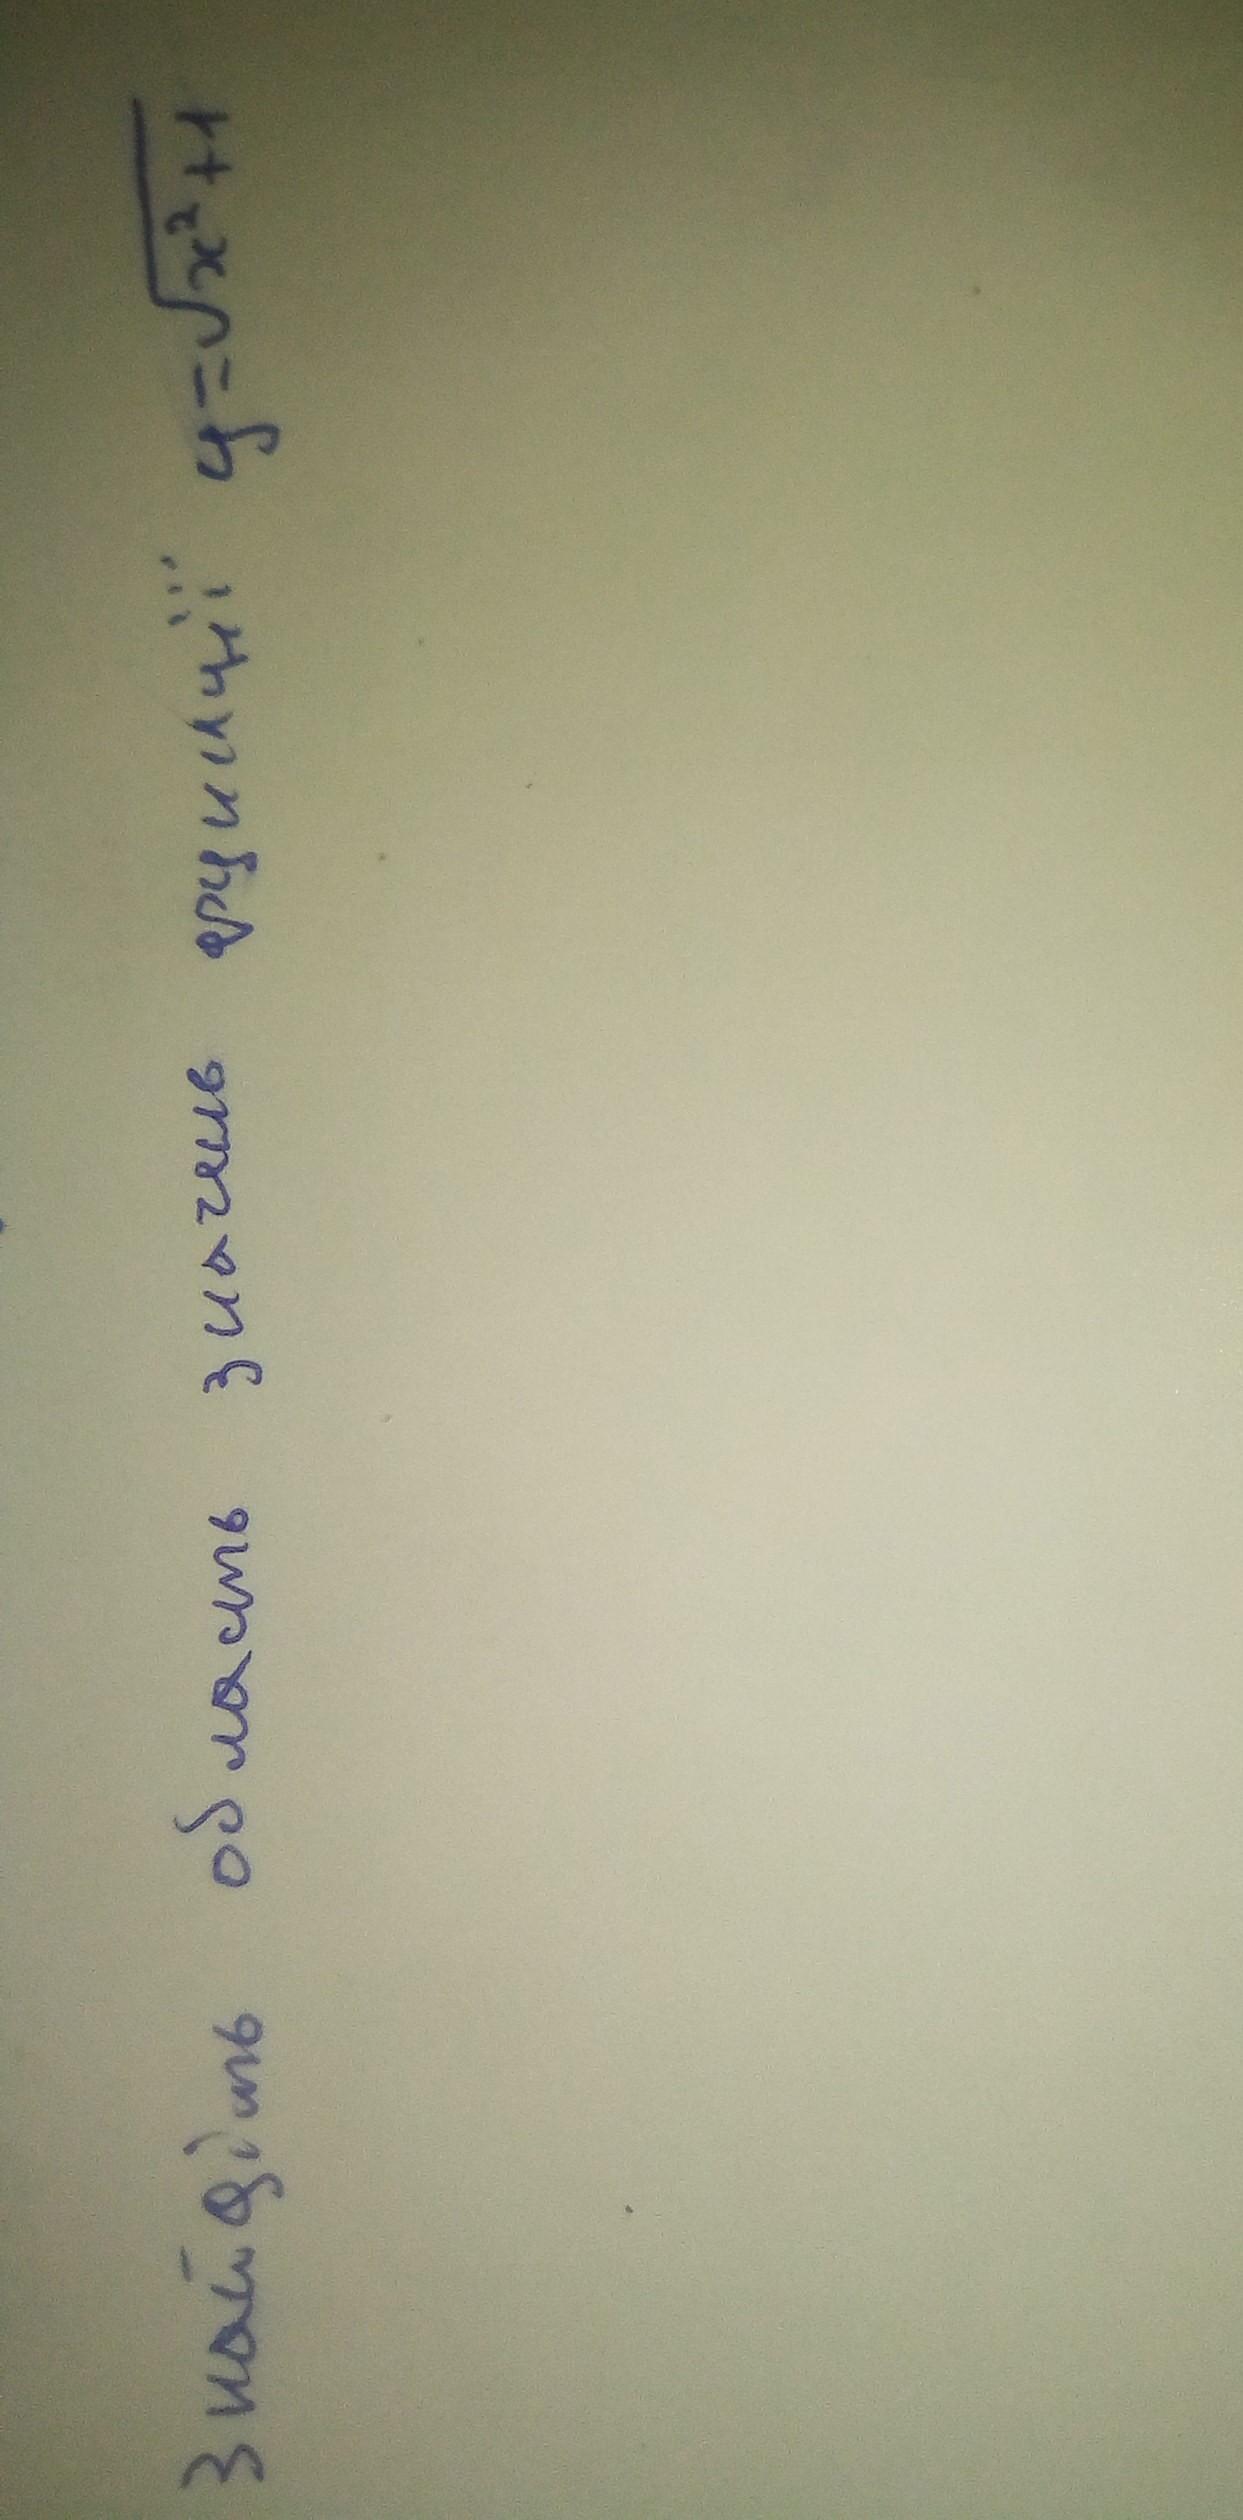 Знайдіть область значень функції y=√x²+1